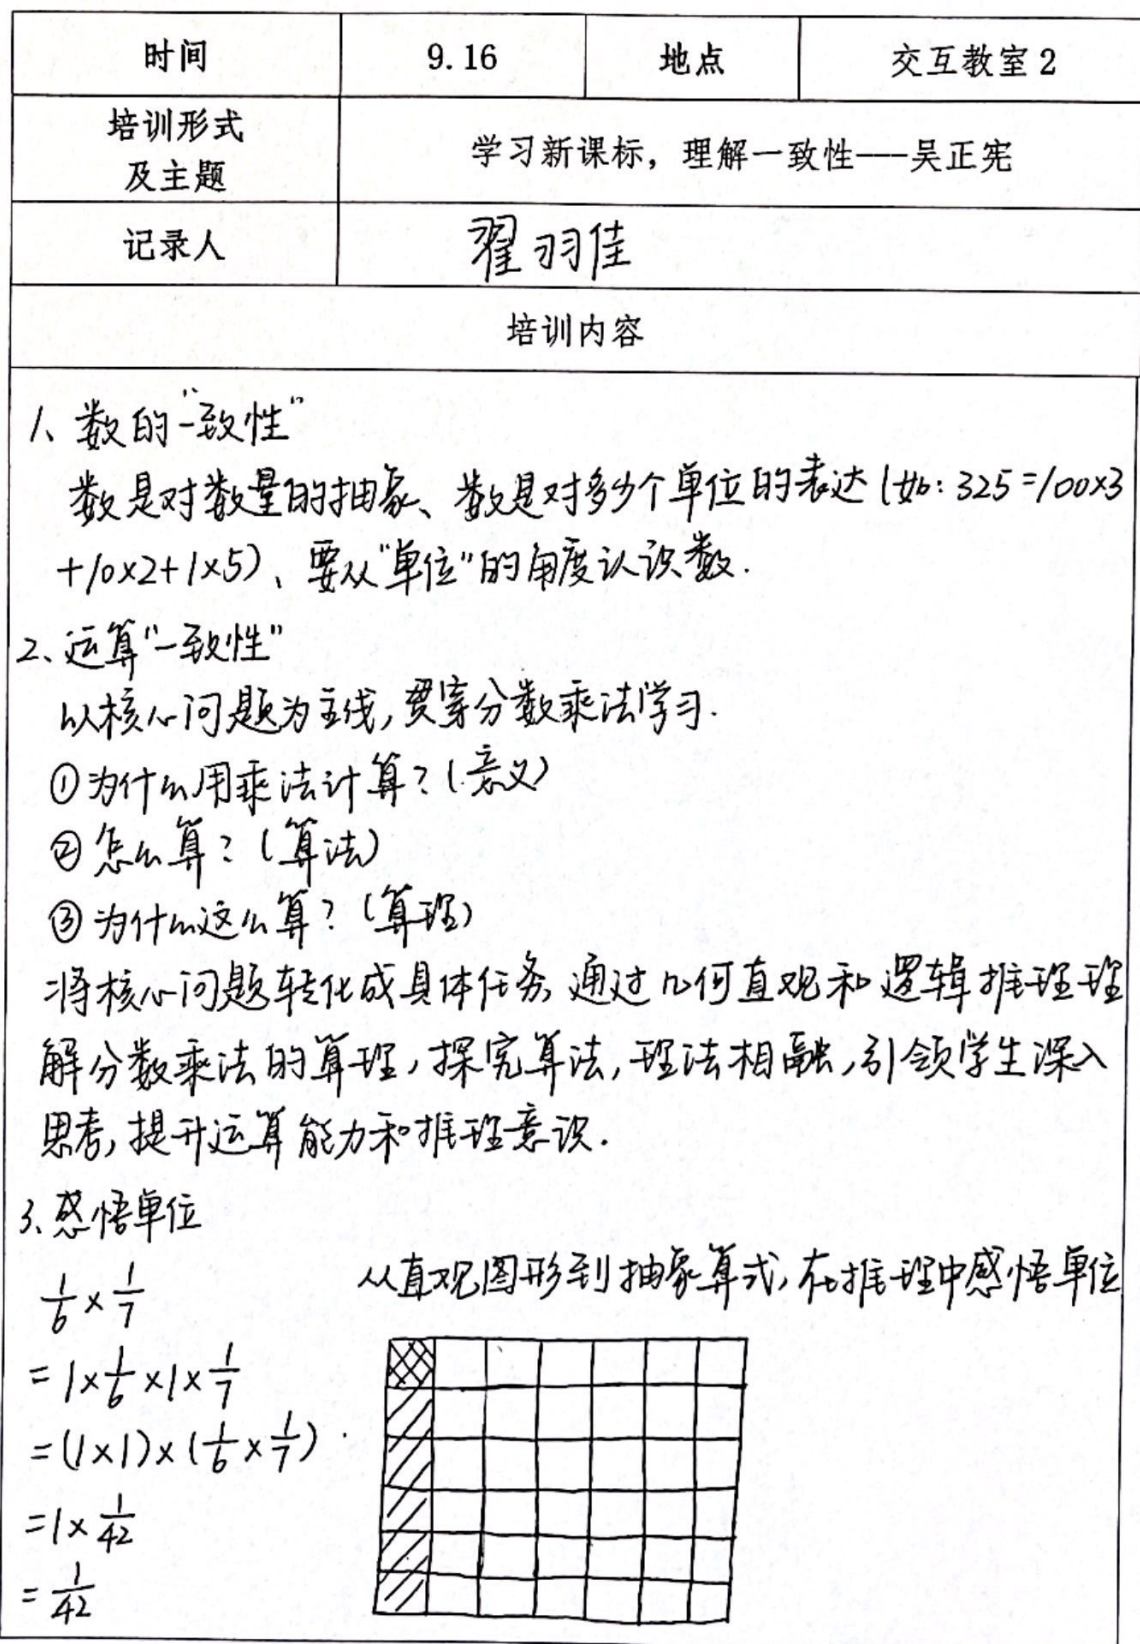 时间 9.16 地点 交互教室 2
培训形式
及主题
学习新课标，理解一致性——吴正宪
记录人 翟羽佳
培训内容
1、数的“一致性”
数是对数量的抽象、数是对多少个单位的表达(如: 325=100×3
+10×2+1×5)、要从“单位”的角度认识数.
2、运算“一致性”
以核心问题为主线,贯穿分数乘法学习.
①为什么用乘法计算?(意义)
②怎么算?(算法)
③为什么这么算?(算理)
将核心问题转化成具体任务,通过几何直观和逻辑推理理
解分数乘法的算理,探究算法,理法相融,引领学生深入
思考,提升运算能力和推理意识.
3、感悟单位
从直观图形到抽象算式,在推理中感悟单位
1/6×1/7
=1×1/6×1×1/7
=(1×1)×(1/6×1/7)
=1×1/42
=1/42